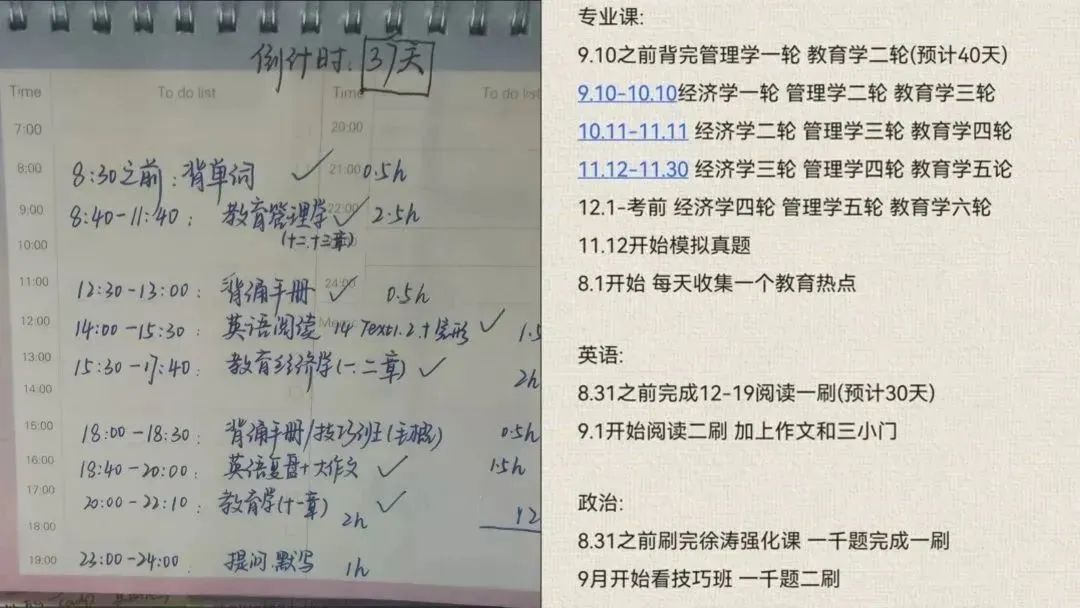 倒计时: 37天
Time To do list Time To do list
7:00 20:00
8:00 8:30之前: 背单词 ✓ 21:00 0.5h
9:00 8:40-11:40: 教育管理学 ✓ 22:00 2.5h
10:00 (十二.十三章)
11:00 12:30-13:00: 背诵手册 ✓ 24:00 0.5h
12:00 14:00-15:30: 英语阅读 14 Text1.2+完形 ✓ 1.5
Memo
13:00 15:30-17:40: 教育经济学(一.二章) ✓ 2h
14:00
15:00 18:00-18:30: 背诵手册/技巧班(毛概) 0.5h
16:00 18:40-20:00: 英语复盘+大作文 ✓ 1.5h
17:00 20:00-22:10: 教育学(十一章) ✓ 2h
18:00 12
19:00 23:00-24:00: 提问.默写 1h
专业课:
9.10之前背完管理学一轮 教育学二轮(预计40天)
9.10-10.10经济学一轮 管理学二轮 教育学三轮
10.11-11.11 经济学二轮 管理学三轮 教育学四轮
11.12-11.30 经济学三轮 管理学四轮 教育学五论
12.1-考前 经济学四轮 管理学五轮 教育学六轮
11.12开始模拟真题
8.1开始 每天收集一个教育热点
英语:
8.31之前完成12-19阅读一刷(预计30天)
9.1开始阅读二刷 加上作文和三小门
政治:
8.31之前刷完徐涛强化课 一千题完成一刷
9月开始看技巧班 一千题二刷